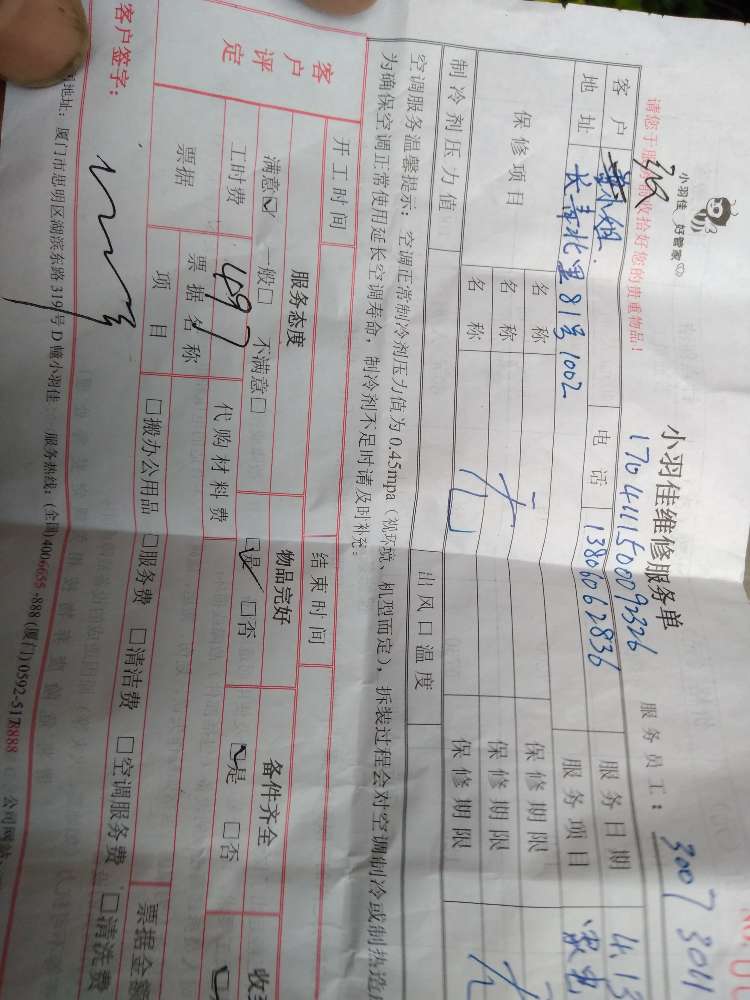 小羽佳 好管家
小羽佳维修服务单
170411500092326
服务员工：3007 3011
请您于服务前收拾好您的贵重物品！
客户 小姐 电话 13806062836 服务日期 4.13
地址 长青北里81号1002 服务项目
保修项目 名称 保修期限
名称 无 保修期限
名称 保修期限
制冷剂压力值 出风口温度
空调服务温馨提示：空调正常制冷剂压力值为0.45mpa（视环境、机型而定），拆装过程会对空调制冷或制热造
为确保空调正常使用延长空调寿命，制冷剂不足时请及时补充。
开工时间 结束时间
客户评定 服务态度 物品完好 备件齐全
满意☑ 一般□ 不满意□ ☑是 □否 ☑是 □否
工时费 497 代购材料费
票据 票据名称
项目 □搬办公用品 □服务费 □清洁费 □空调服务费 □清洗费 票据金额
客户签字：
地址：厦门市思明区湖滨东路319号D幢小羽佳 服务热线：(全国)4006655-888 (厦门)0592-5178888 公司网站